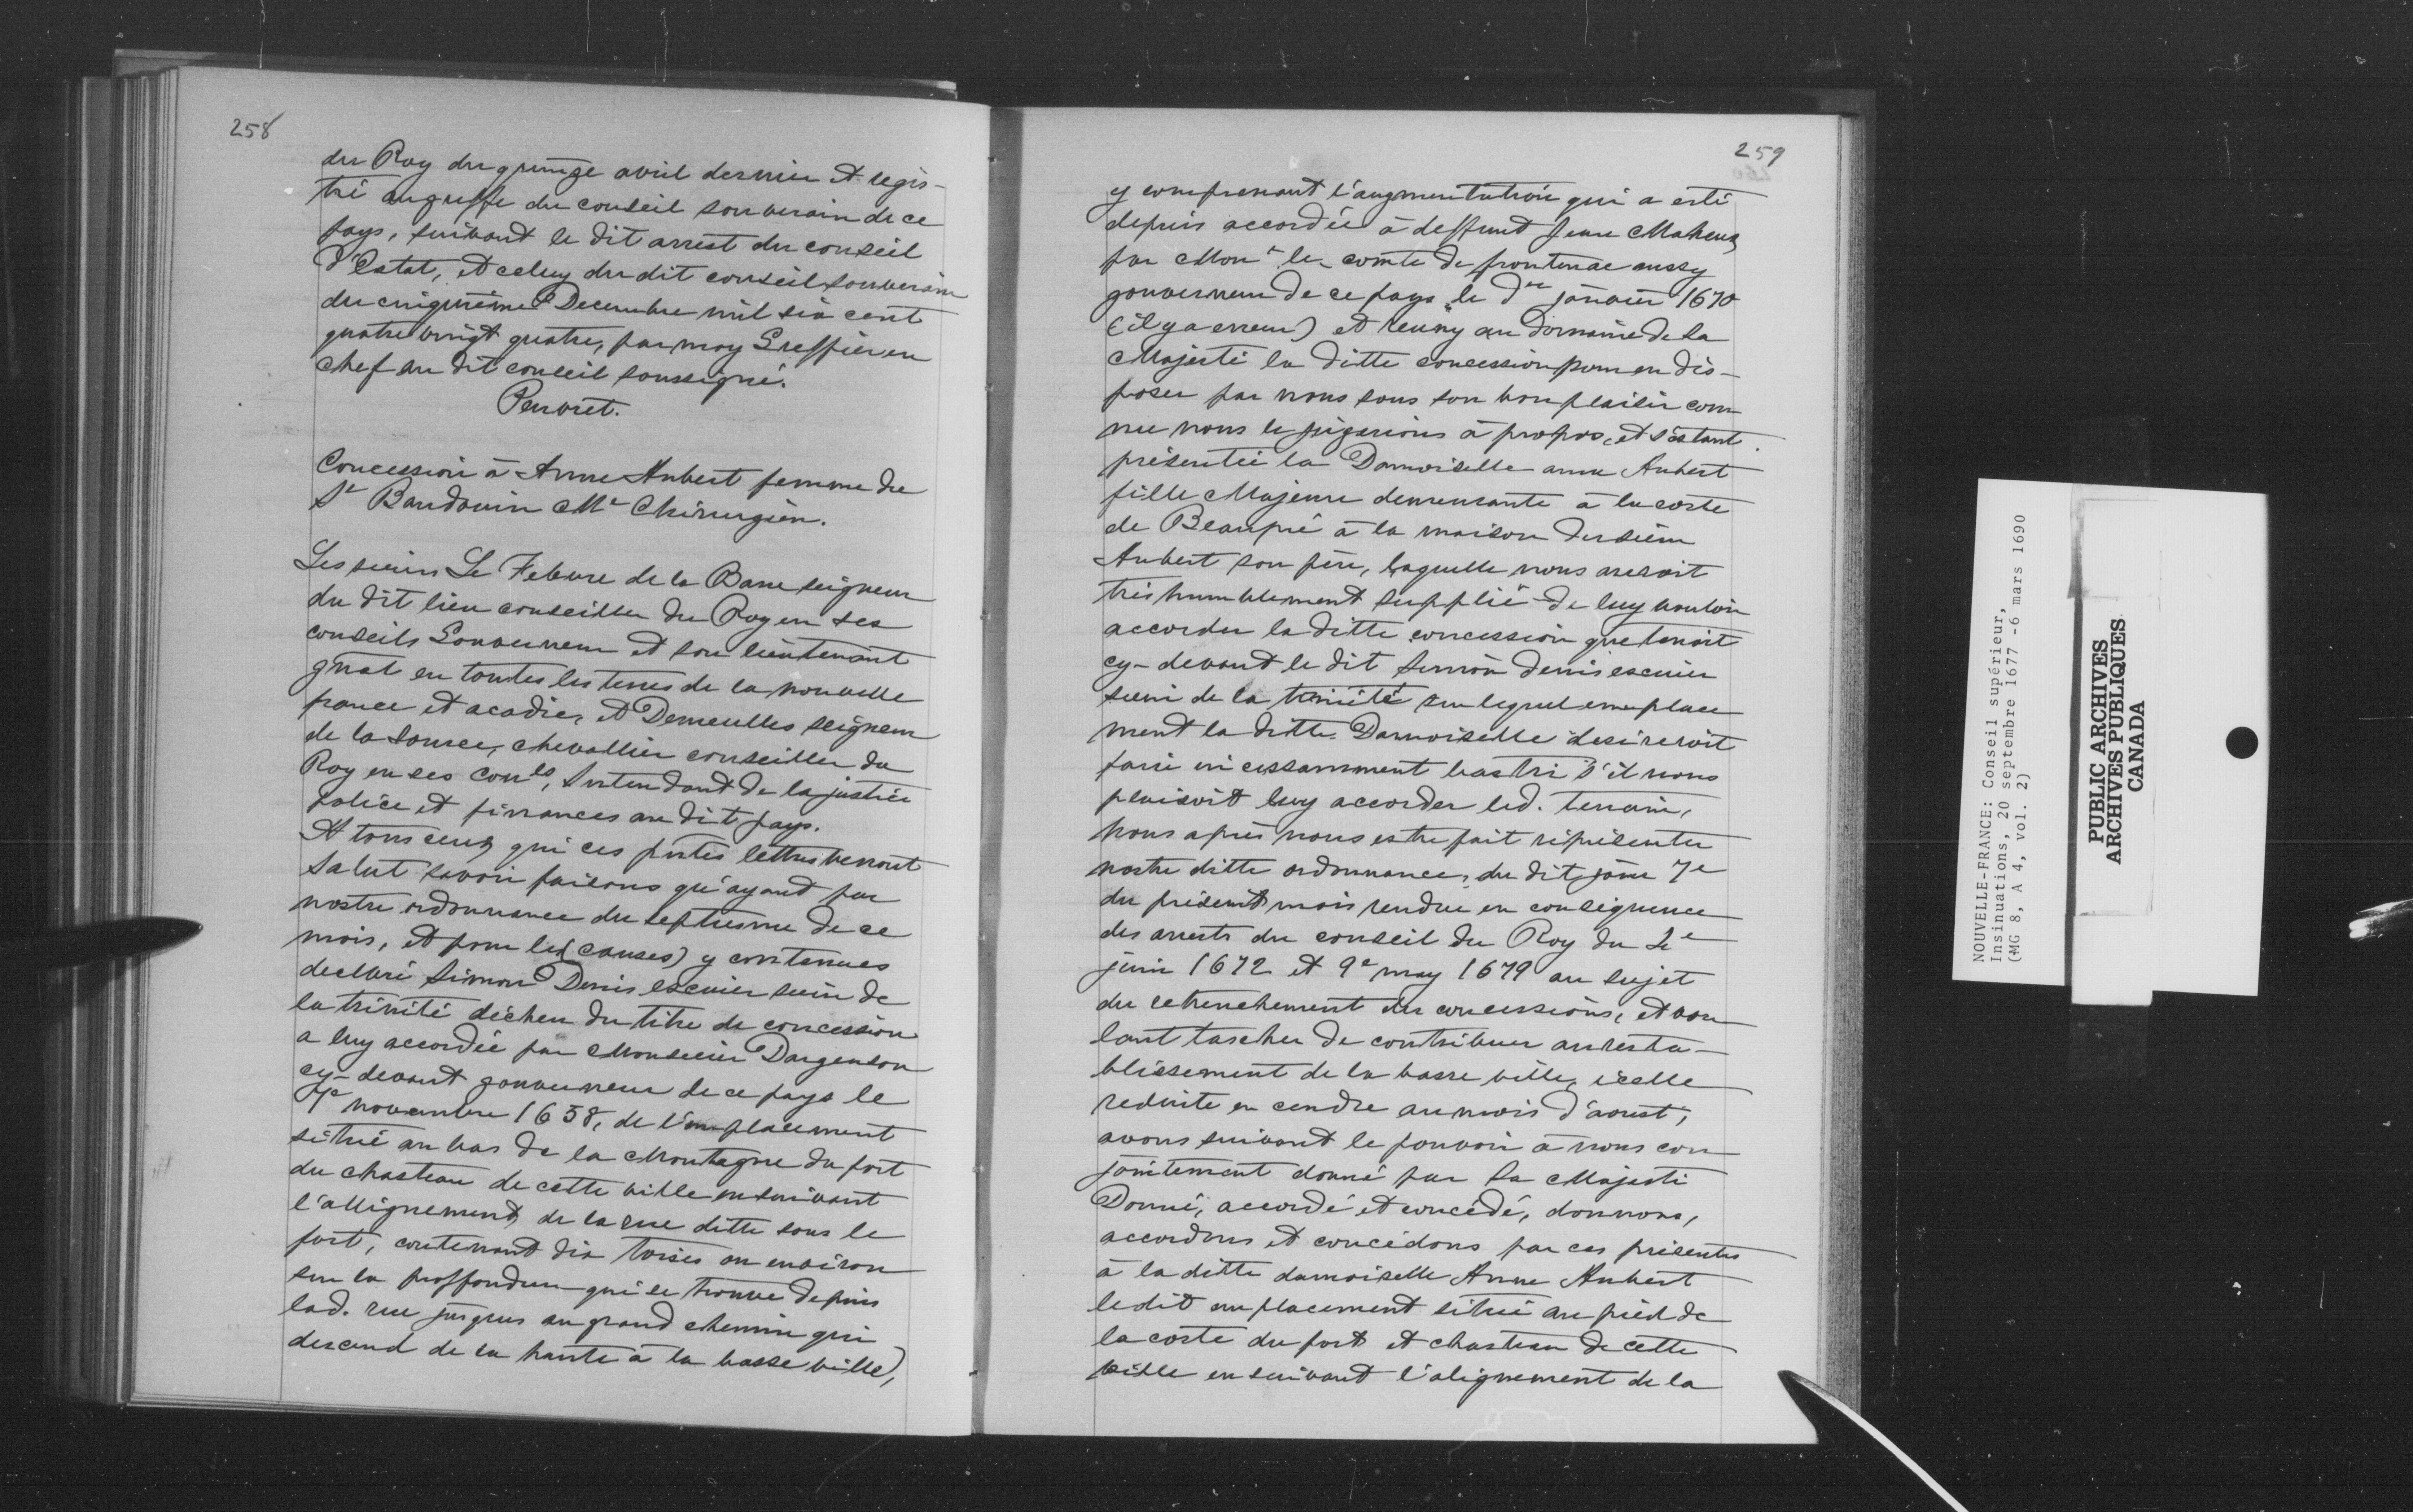 258
du Roy du quinze avril dernier et régis-
tré au greffe du conseil souverain de ce
pays, suivant le dit arrest du conseil
d'Estat, et celuy du dit conseil souverain
du cinquième Decembre mil six cent
quatre vingt quatre, par moy Greffier en
chef au dit conseil soussigné.
Peuvret.
Concession à Anne Aubert femme du
Sr Baudouin Me Chirurgien.
Les sieurs Le Febvre de la Barre seigneur
du dit lieu conseiller du Roy en ses
conseils Gouverneur et son lieutenant
gnal en toutes les terres de la nouvelle
france et acadie, et Demeulles seigneur
de la Source, chevallier conseiller du
Roy en ses conls, Intendant de la justice
police et finances au dit pays.
A tous ceux qui ces pntes lettres verront
Salut savoir faisons qu'ayant par
nostre ordonnance du septiesme de ce
mois, et pour les (causes) y contenues
declaré Simon Denis escuier sieur de
la trinité décheu du titre de concession
a luy accordée par Monsieur Dargenson
cy-devant gouverneur de ce pays le
7e novembre 1658, de l'emplacement
situé au bas de la Montagne du fort
du chasteau de cette ville en suivant
l'allignement de la rue ditte sous le
fort, contenant dix toises ou environ
sur la proffondeur qui se trouve depuis
lad. rue jusques au grand chemin qui
descend de la haute à la basse ville,
259
y comprenant l'augmentation qui a esté
depuis accordée à deffunt Jean Maheux
par Monr le comte de frontenac aussy
gouverneur de ce pays le der janvier 1670
(il y a erreur) et reuny au domaine de Sa
Majesté la ditte concession pour en dis-
poser par nous sous son bon plaisir com
me nous le jugerions à propos, et s'estant
présentée la Damoiselle anne Aubert
fille Majeure demeurante à la coste
de Beaupré à la maison du sieur
Aubert son père, laquelle nous auroit
très humblement supplié de luy vouloir
accorder la ditte concession que tenoit
cy-devant le dit Simon denis escuier
sieur de la trinité sur lequel emplace
ment la ditte Damoiselle desireroit
faire incessamment bastir s'il nous
plaisoit luy accorder led. terrain,
Nous après nous estre fait réprésenter
nostre ditte ordonnance, du dit jour 7e
du présent mois rendue en conséquence
des arrests du conseil du Roy du 4e
juin 1672 et 9e may 1679 au sujet
du retrenchement des concessions, et vou
lant tascher de contribuer au resta-
blissement de la basse ville, icelle
reduite en cendre au mois d'aoust,
avons suivant le pouvoir à nous con
jointement donné par Sa Majesté
Donné, accordé et concédé, donnons,
accordons et concédons par ces présentes
à la ditte damoiselle Anne Aubert
ledit emplacement situé au pied de
la coste du fort et chasteau de cette
ville en suivant l'alignement de la
NOUVELLE-FRANCE: Conseil supérieur,
Insinuations, 20 septembre 1677 -6 mars 1690
(MG 8, A 4, vol. 2)
PUBLIC ARCHIVES
ARCHIVES PUBLIQUES
CANADA